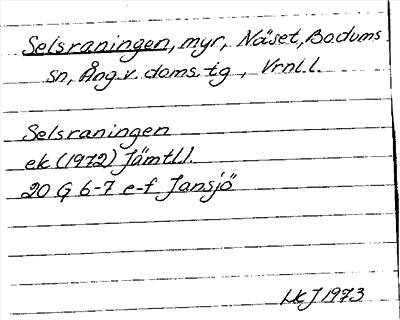 Selsraningen, myr, Näset, Bodums
sn, Ång.v. doms.tg, Vrnl.l.
Selsraningen
ek (1972) Jämtl.l.
20 G 6-7 e-f Jansjö
LkJ 1973